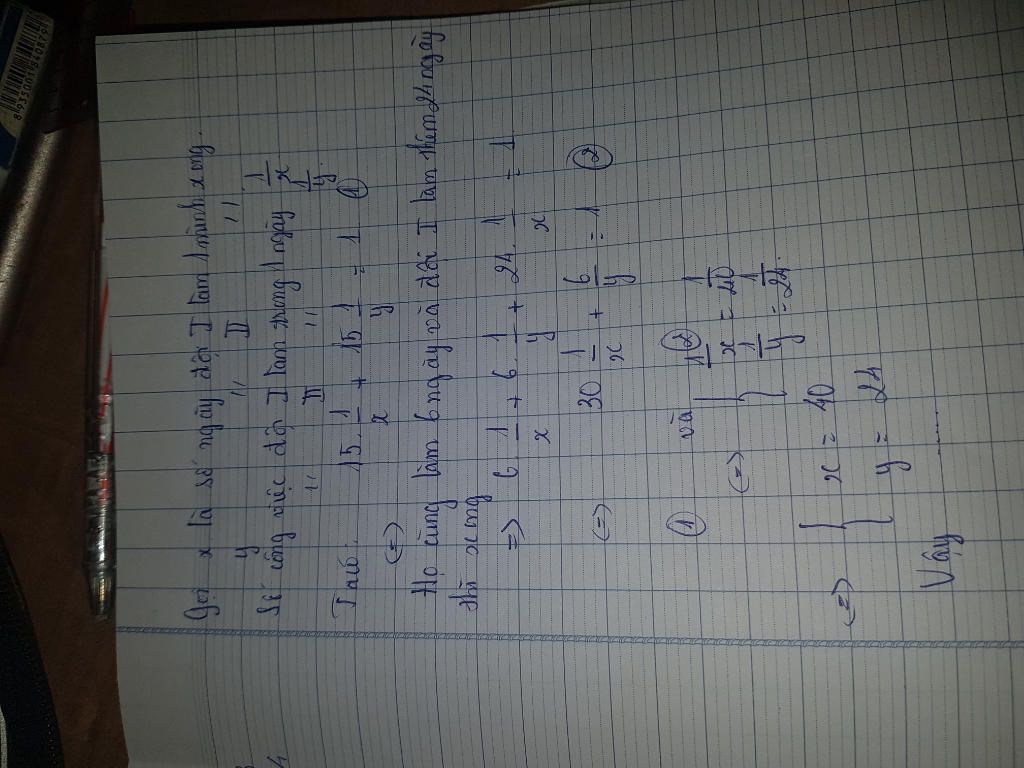 Gọi x là số ngày đội I làm 1 mình xong.
y " II "
Số công việc đội I làm trong 1 ngày 1/x
" II " 1/y
Ta có:
(=) 15. 1/x + 15 1/y = 1 (1)
Họ cùng làm 6 ngày và đội I làm thêm 24 ngày
thì xong
=> 6. 1/x + 6. 1/y + 24. 1/x = 1
(=) 30 1/x + 6/y = 1 (2)
(1) và (2)
(=) { 1/x = 1/40
1/y = 1/24.
(=) { x = 40
y = 24
Vậy ......